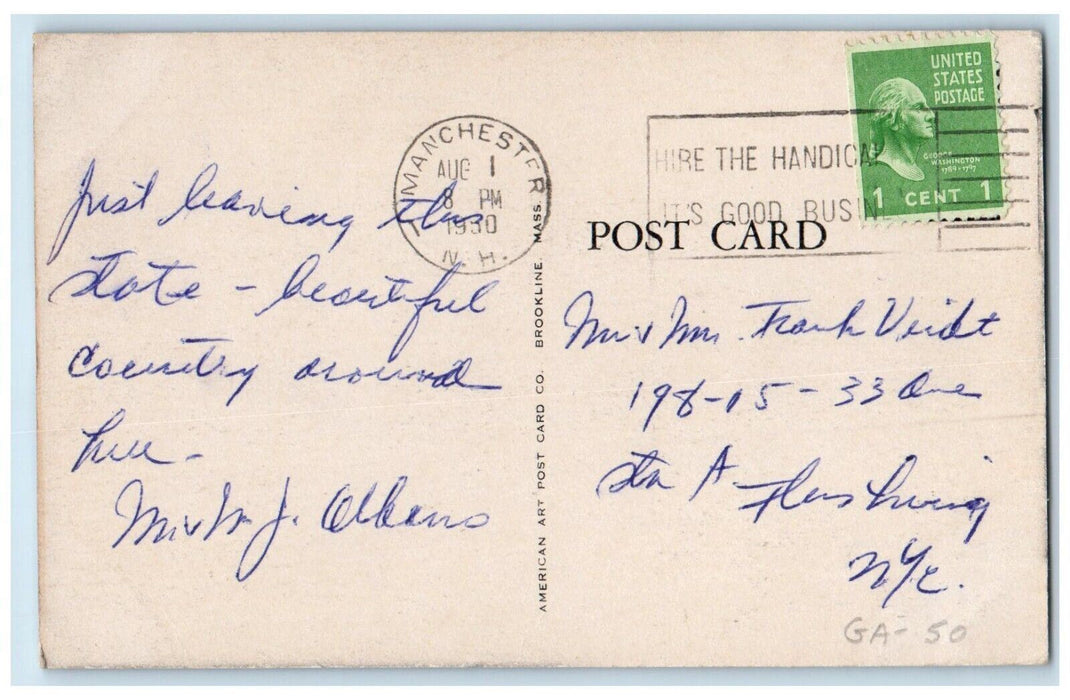 Just leaving this
state - beautiful
country around
here -
Mr & Mrs J. Albano
MANCHESTER
AUG 1
8 PM
1950
N.H.
HIRE THE HANDICA
IT'S GOOD BUSIN
UNITED
STATES
POSTAGE
GEORGE
WASHINGTON
1789-1797
1 CENT 1
POST CARD
AMERICAN ART POST CARD CO. BROOKLINE, MASS.
Mr & Mrs. Frank Veidt
198-15-33 Ave
Sta A Flushing
NYC.
GA-50